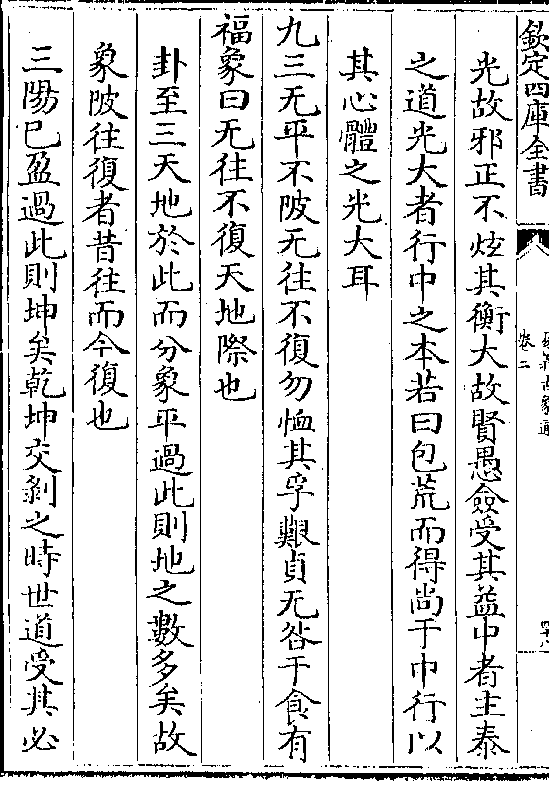 欽定四庫全書
卷二
光故邪正不炫其衡大故賢愚僉受其益中者主泰
之道光大者行中之本若曰包荒而得尚于中行以
其心體之光大耳
九三无平不陂无往不復勿恤其孚艱貞无咎于食有
福象曰无往不復天地際也
卦至三天地於此而分象平過此則地之數多矣故
象陂往復者昔往而今復也
三陽已盈過此則坤矣乾坤交剝之時世道受其必